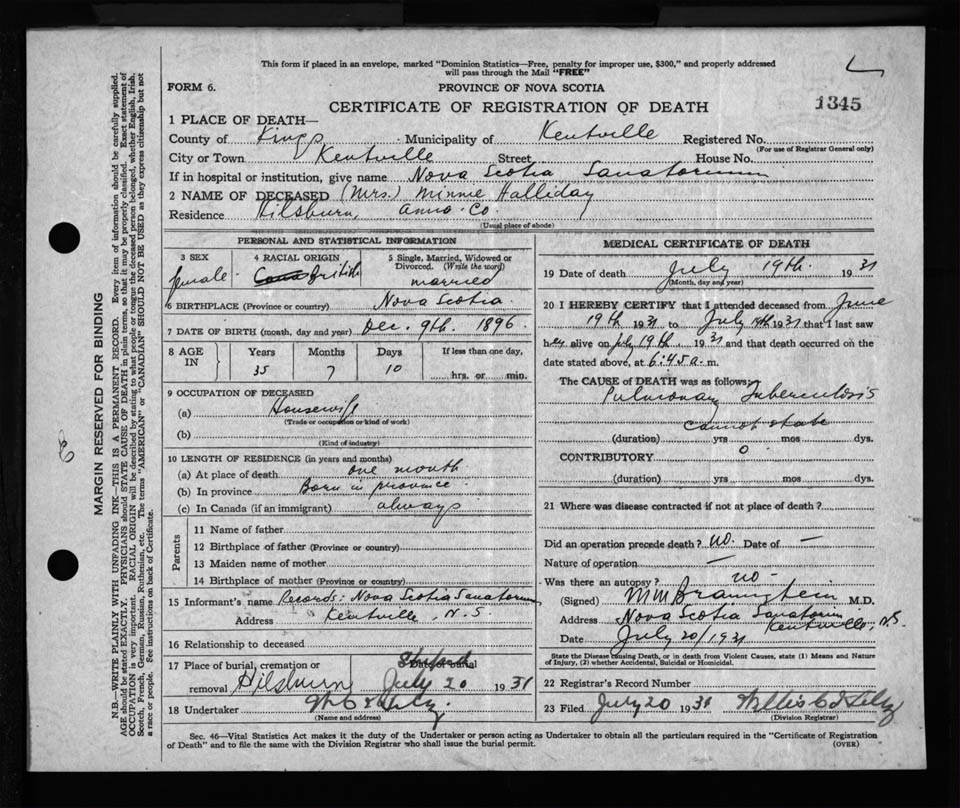 This form if placed in an envelope, marked "Dominion Statistics—Free, penalty for improper use, $300," and properly addressed
will pass through the Mail "FREE"
FORM 6.
PROVINCE OF NOVA SCOTIA
CERTIFICATE OF REGISTRATION OF DEATH
1345
1 PLACE OF DEATH—
County of Kings Municipality of Kentville Registered No.
(For use of Registrar General only)
City or Town Kentville Street House No.
If in hospital or institution, give name Nova Scotia Sanatorium
2 NAME OF DECEASED (Mrs.) Minnie Halliday
Residence Hilsburn, Anna. Co.
(Usual place of abode)
PERSONAL AND STATISTICAL INFORMATION
3 SEX
female
4 RACIAL ORIGIN
British
5 Single, Married, Widowed or
Divorced. (Write the word)
married
6 BIRTHPLACE (Province or country) Nova Scotia
7 DATE OF BIRTH (month, day and year) Dec. 9th. 1896
8 AGE
IN
Years
35
Months
7
Days
10
If less than one day,
hrs. or min.
9 OCCUPATION OF DECEASED
(a) Housewife
(Trade or occupation or kind of work)
(b)
(Kind of industry)
10 LENGTH OF RESIDENCE (in years and months)
(a) At place of death one month
(b) In province Born in province
(c) In Canada (if an immigrant) always
Parents
11 Name of father
12 Birthplace of father (Province or country)
13 Maiden name of mother
14 Birthplace of mother (Province or country)
15 Informant's name Records: Nova Scotia Sanatorium
Address Kentville, N.S.
16 Relationship to deceased
17 Place of burial, cremation or
removal Hilsburn July 20 1931
18 Undertaker
(Name and address)
MEDICAL CERTIFICATE OF DEATH
19 Date of death July 19th. 1931
(Month, day and year)
20 I HEREBY CERTIFY that I attended deceased from June
19th 1931 to July 19th 1931 that I last saw
her alive on July 19th 1931 and that death occurred on the
date stated above, at 6:45 a. m.
The CAUSE of DEATH was as follows:
Pulmonary Tuberculosis
cannot state
(duration) yrs mos dys.
CONTRIBUTORY 0
(duration) yrs mos dys.
21 Where was disease contracted if not at place of death?
Did an operation precede death? no. Date of —
Nature of operation —
Was there an autopsy? no -
(Signed) M.D.
Address Nova Scotia Sanatorium
Kentville, N.S.
Date July 20/1931
State the Disease causing Death, or in death from Violent Causes, state (1) Means and Nature
of Injury, (2) whether Accidental, Suicidal or Homicidal.
22 Registrar's Record Number
23 Filed July 20 1931
(Division Registrar)
Sec. 46—Vital Statistics Act makes it the duty of the Undertaker or person acting as Undertaker to obtain all the particulars required in the "Certificate of Registration
of Death" and to file the same with the Division Registrar who shall issue the burial permit.
(OVER)
MARGIN RESERVED FOR BINDING
N.B.—WRITE PLAINLY WITH UNFADING INK—THIS IS A PERMANENT RECORD. Every item of information should be carefully supplied.
AGE should be stated EXACTLY. PHYSICIANS should STATE CAUSE OF DEATH in plain terms, so that it may be properly classified. Exact statement of
OCCUPATION is very important. RACIAL ORIGIN will be described by stating to what people or tongue the deceased person belonged, whether English, Irish,
Scotch, French, German, Russian, Ruthenian, etc. The terms "AMERICAN" or "CANADIAN" SHOULD NOT BE USED as they express citizenship but not
a race or people. See instructions on back of Certificate.